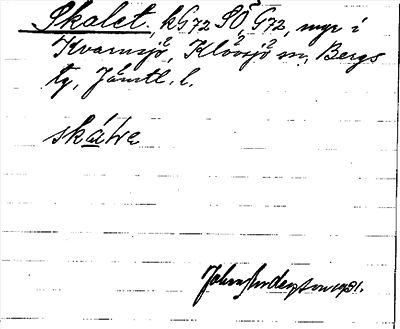 Skalet, kG72 SÖ, G72, myr i
Kvarnsjö, Klövsjö sn, Bergs
tg, Jämtl. l.
skálre
John Anderson 1931.